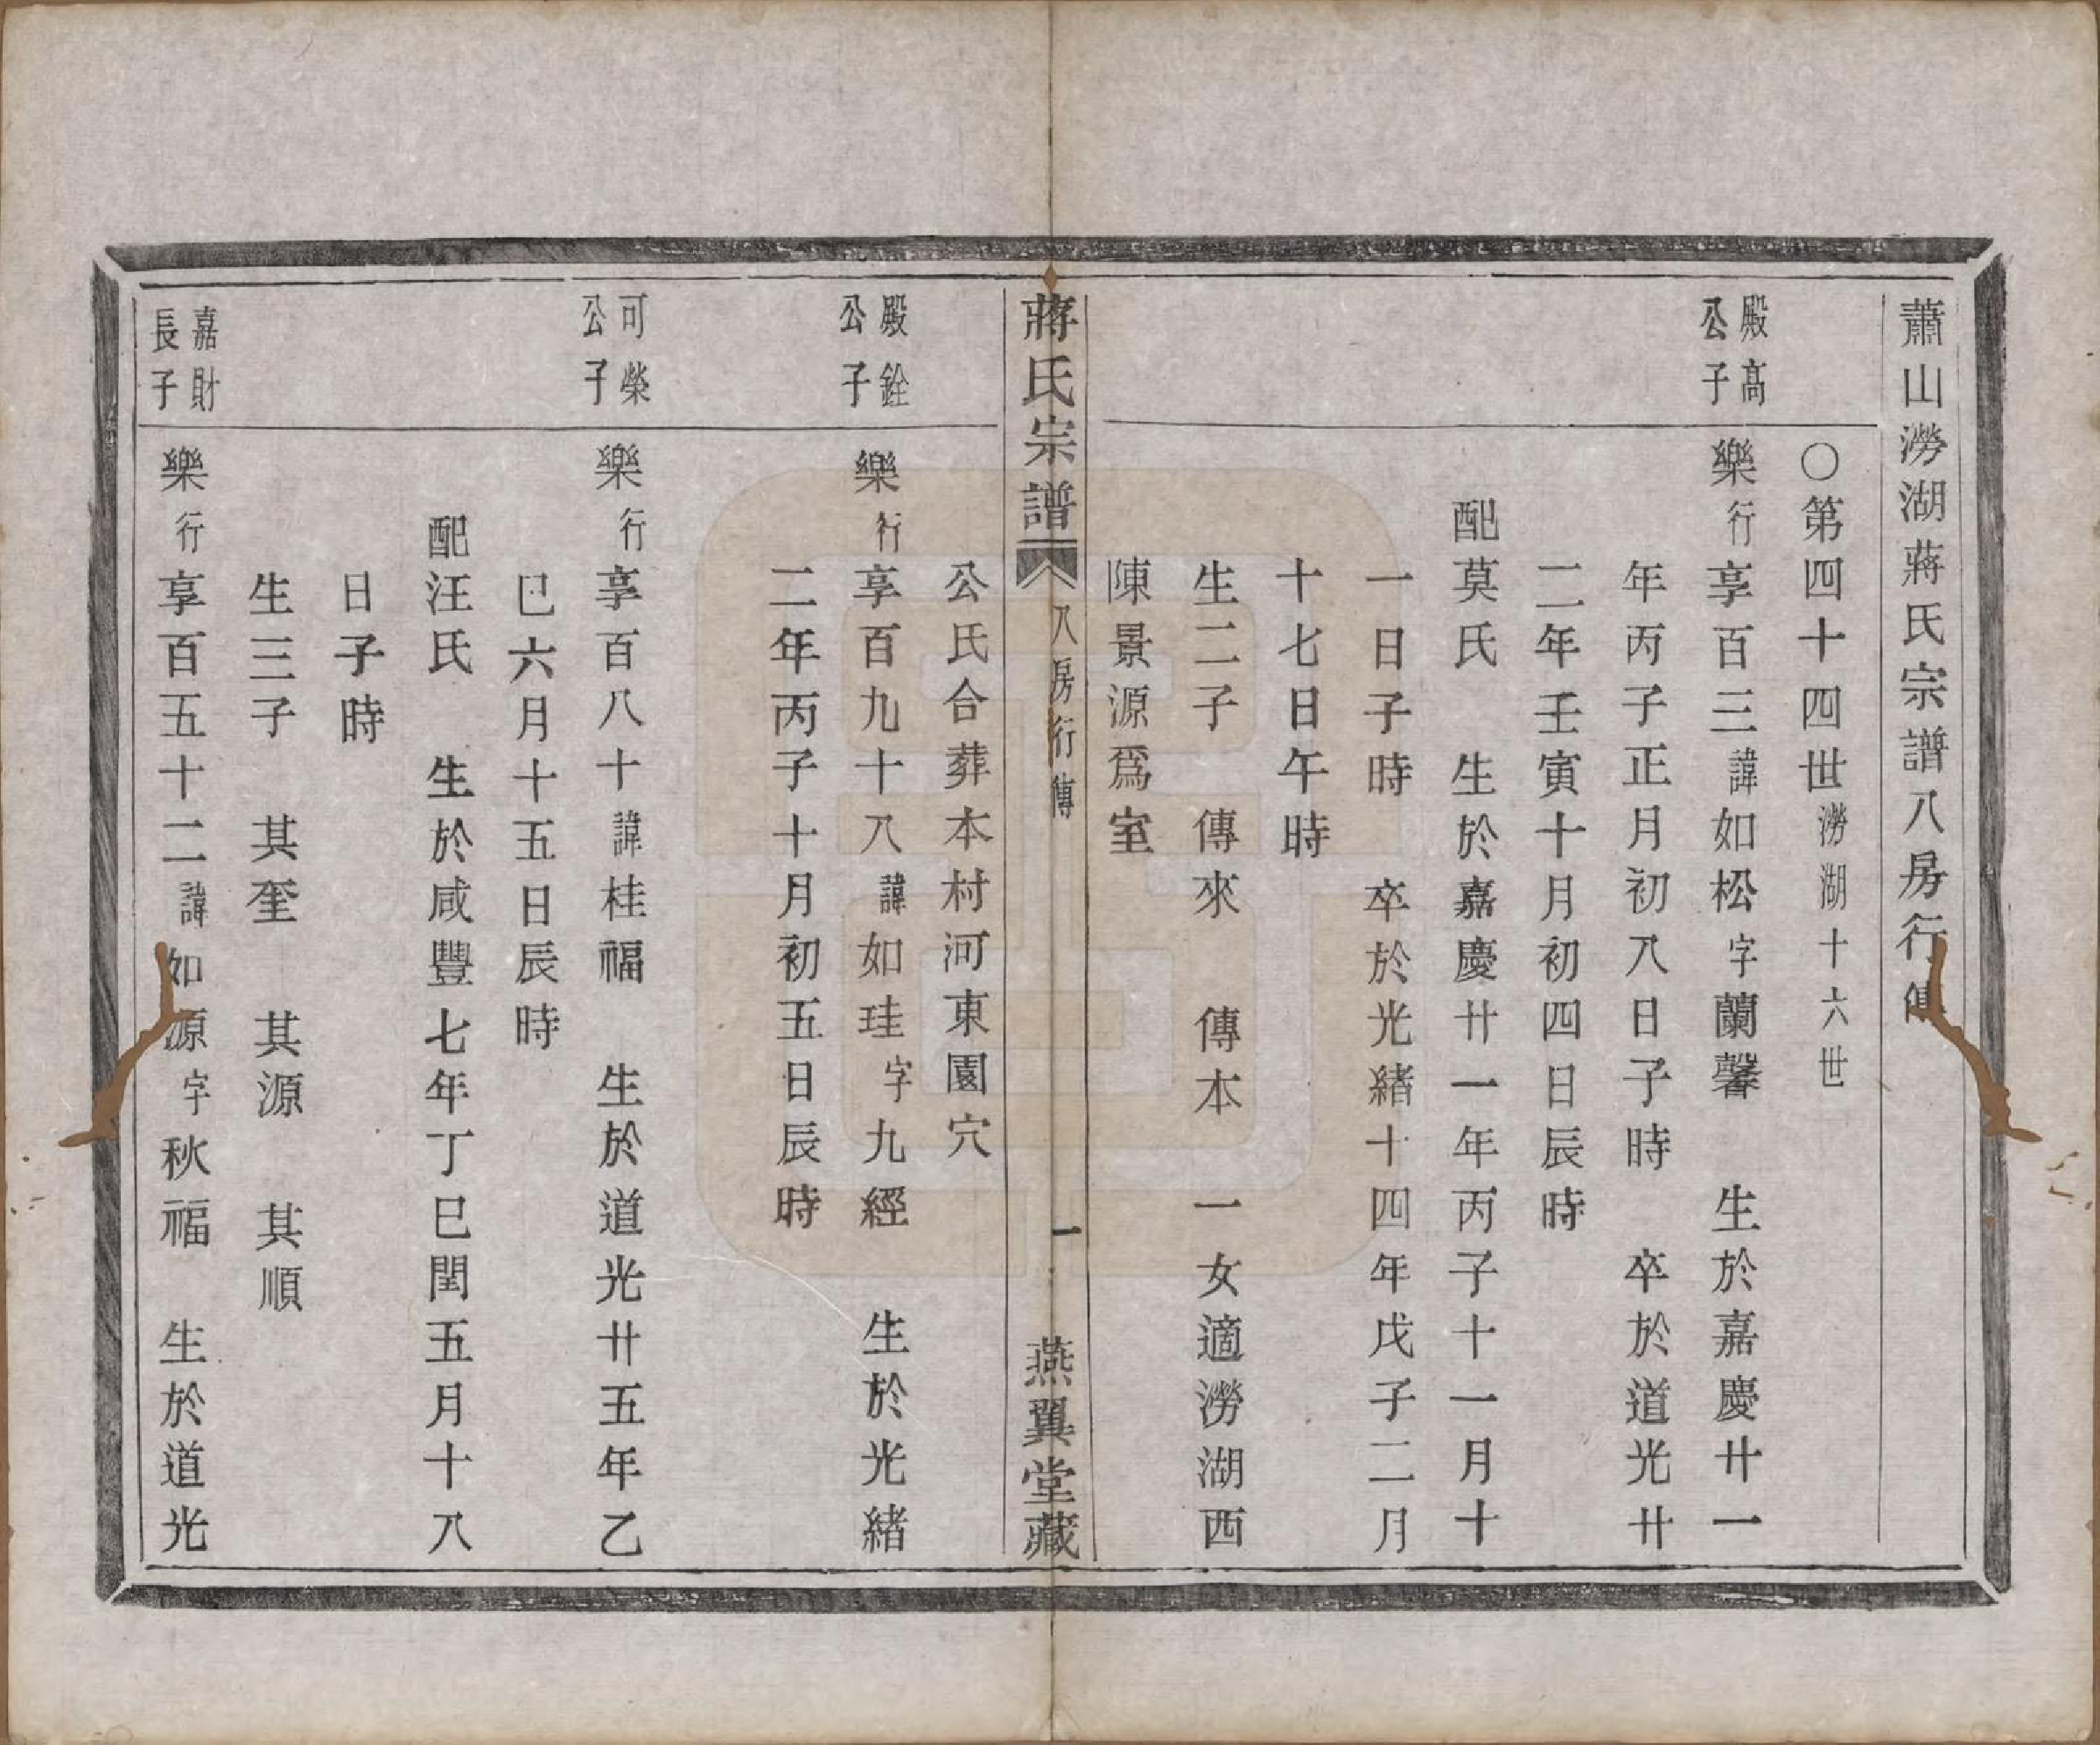 蕭山澇湖蔣氏宗譜八房行傳
○第四十四世澇湖十六世
殿高公子
樂行享百三諱如松字蘭馨 生於嘉慶廿一
年丙子正月初八日子時 卒於道光廿
二年壬寅十月初四日辰時
配莫氏 生於嘉慶廿一年丙子十一月十
一日子時 卒於光緒十四年戊子二月
十七日午時
生二子 傳來 傳本 一女適澇湖西
陳景源爲室
蔣氏宗譜 八房行傳 一 燕翼堂藏
公氏合葬本村河東園穴
殿銓公子
樂行享百九十八諱如珪字九經 生於光緒
二年丙子十月初五日辰時
可榮公子
樂行享百八十諱桂福 生於道光廿五年乙
巳六月十五日辰時
配汪氏 生於咸豐七年丁巳閏五月十八
日子時
生三子 其奎 其源 其順
嘉財長子
樂行享百五十二諱如源字秋福 生於道光